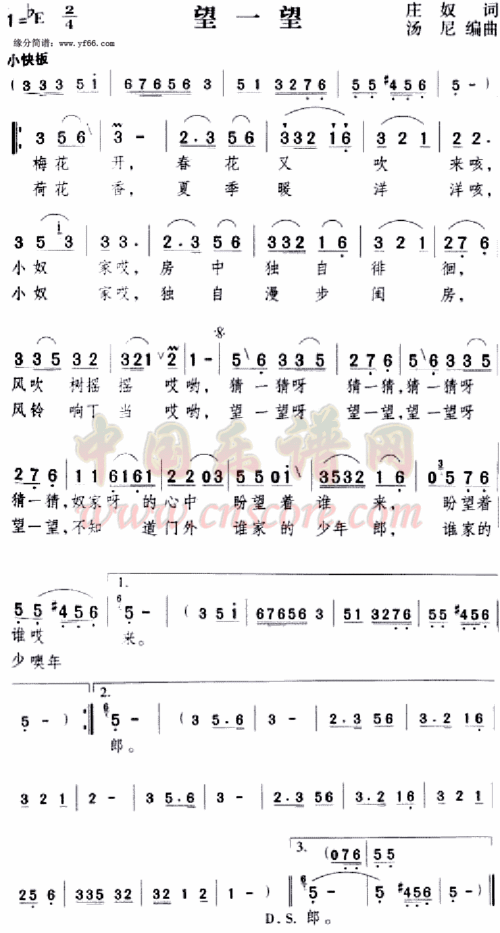 望一望
1=♭E 2/4
庄奴 词
汤尼 编曲
缘分简谱：www.yf66.com
小快板
(3 3 3 5 i | 6 7 6 5 6 3 | 5 1 3 2 7 6 | 5 5 #4 5 6 | 5 - )
3 5 6 | 3 - | 2·3 5 6 | 3 3 2 1 6 | 3 2 1 | 2 2·
梅花 开，春花又 吹 来咳，
荷花 香，夏季暖 洋 洋咳，
3 5 i 3 | 3 3· | 2·3 5 6 | 3 3 2 1 6 | 3 2 1 | 2 7 6
小奴 家哎，房中独自徘徊，
小奴 家哎，独自漫步闺房，
3 3 5 3 2 | 3 2 1 2 | 1 - | 5 6 3 3 5 | 2 7 6 | 5 6 3 3 5
风吹树摇摇 哎哟，猜一猜呀 猜一猜，猜一猜呀
风铃响丁当 哎哟，望一望呀 望一望，望一望呀
2 7 6 | 1 1 6 1 6 1 | 2 2 0 3 | 5 5 0 i | 3 5 3 2 1 6 | 0 5 7 6
猜一猜，奴家呀的心中 盼望着谁来，盼望着
望一望，不知道门外 谁家的少年郎，谁家的
中国乐谱网
www.cnscore.com
1.
5 5 #4 5 6 | 5 - | (3 5 i | 6 7 6 5 6 3 | 5 1 3 2 7 6 | 5 5 #4 5 6
谁哎 来。
少噢年
2.
5 - ) :‖ 5 - | (3 5·6 | 3 - | 2·3 5 6 | 3·2 1 6
郎。
3 2 1 | 2 - | 3 5·6 | 3 - | 2·3 5 6 | 3·2 1 6 | 3 2 1
3.
(0 7 6 | 5 5
2 5 6 | 3 3 5 3 2 | 3 2 1 2 | 1 - ) ‖ 5 - | 5 #4 5 6 | 5 - ) ‖
D.S. 郎。